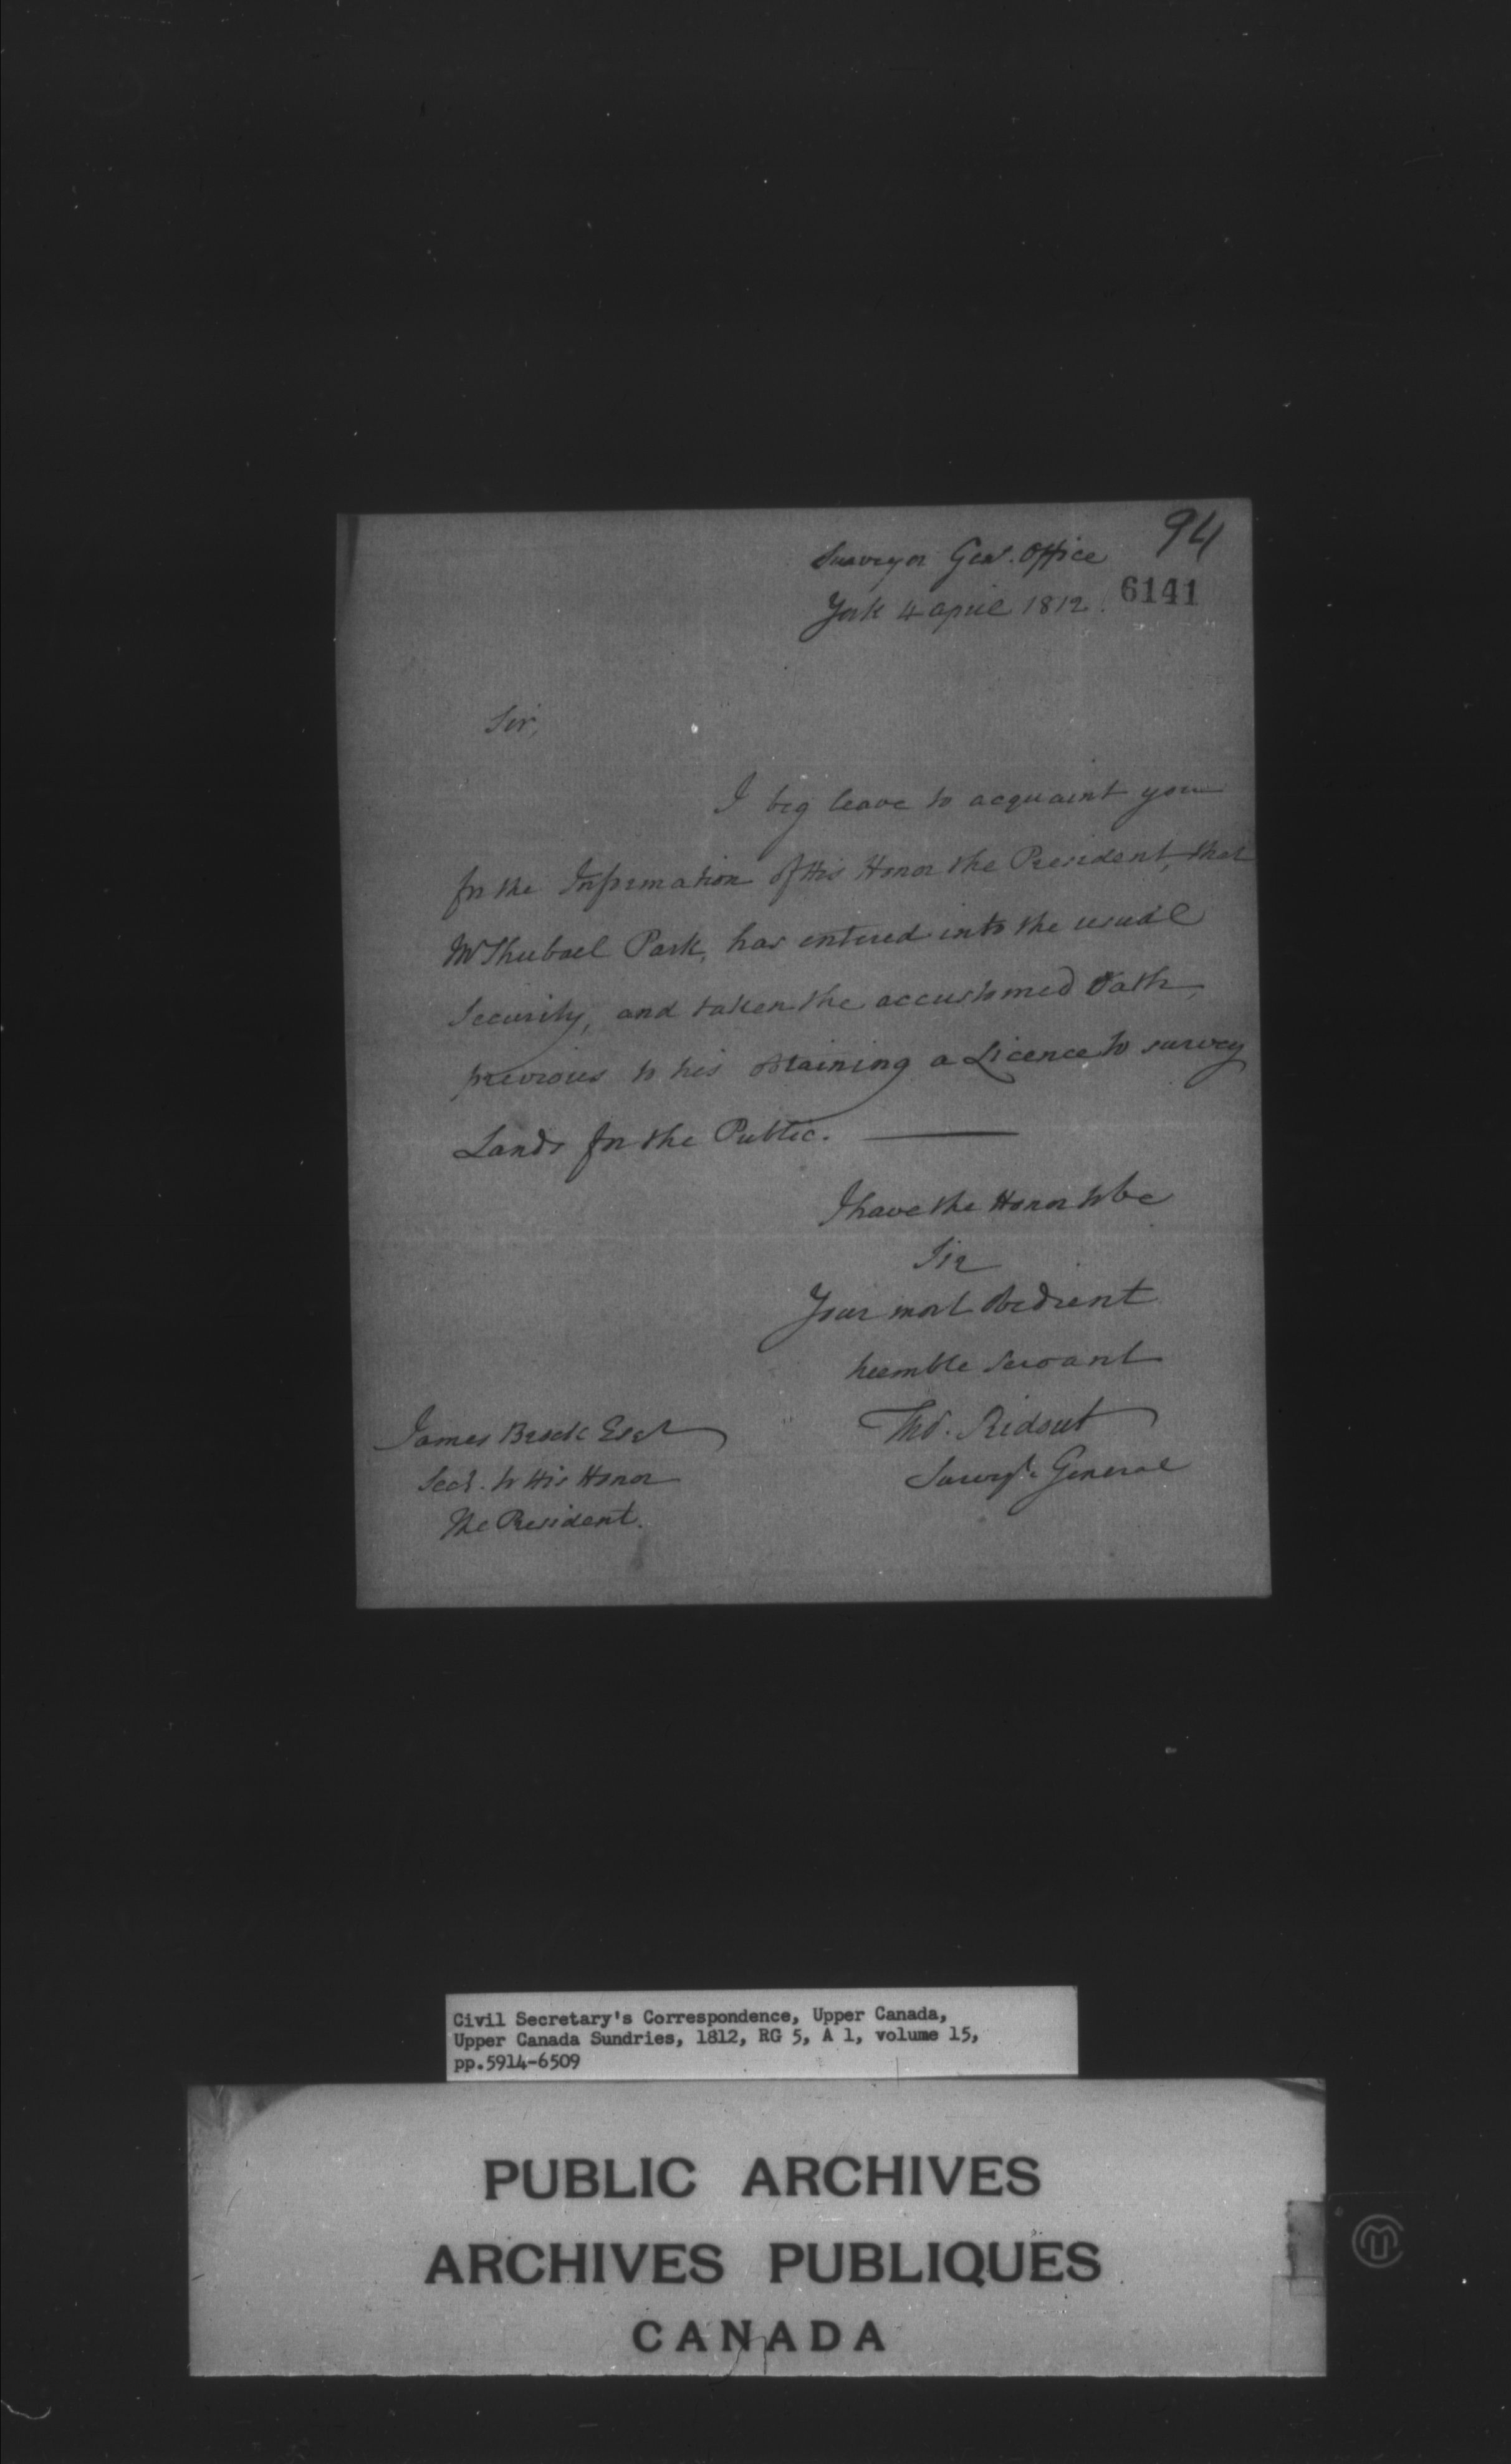 94
Surveyor Genl. Office
York 4 april 1812.
6141
Sir,
I beg leave to acquaint you
for the Information of His Honor the President, that
Mr Shubael Park, has entered into the usual
Security, and taken the accustomed Oath,
previous to his obtaining a Licence to survey
Lands for the Public.
I have the Honor to be
Sir
Your most obedient
humble servant
Thos. Ridout
Survr. General
James Brock Esqr
Secy. to His Honor
The President.
Civil Secretary's Correspondence, Upper Canada,
Upper Canada Sundries, 1812, RG 5, A 1, volume 15,
pp.5914-6509
PUBLIC ARCHIVES
ARCHIVES PUBLIQUES
CANADA